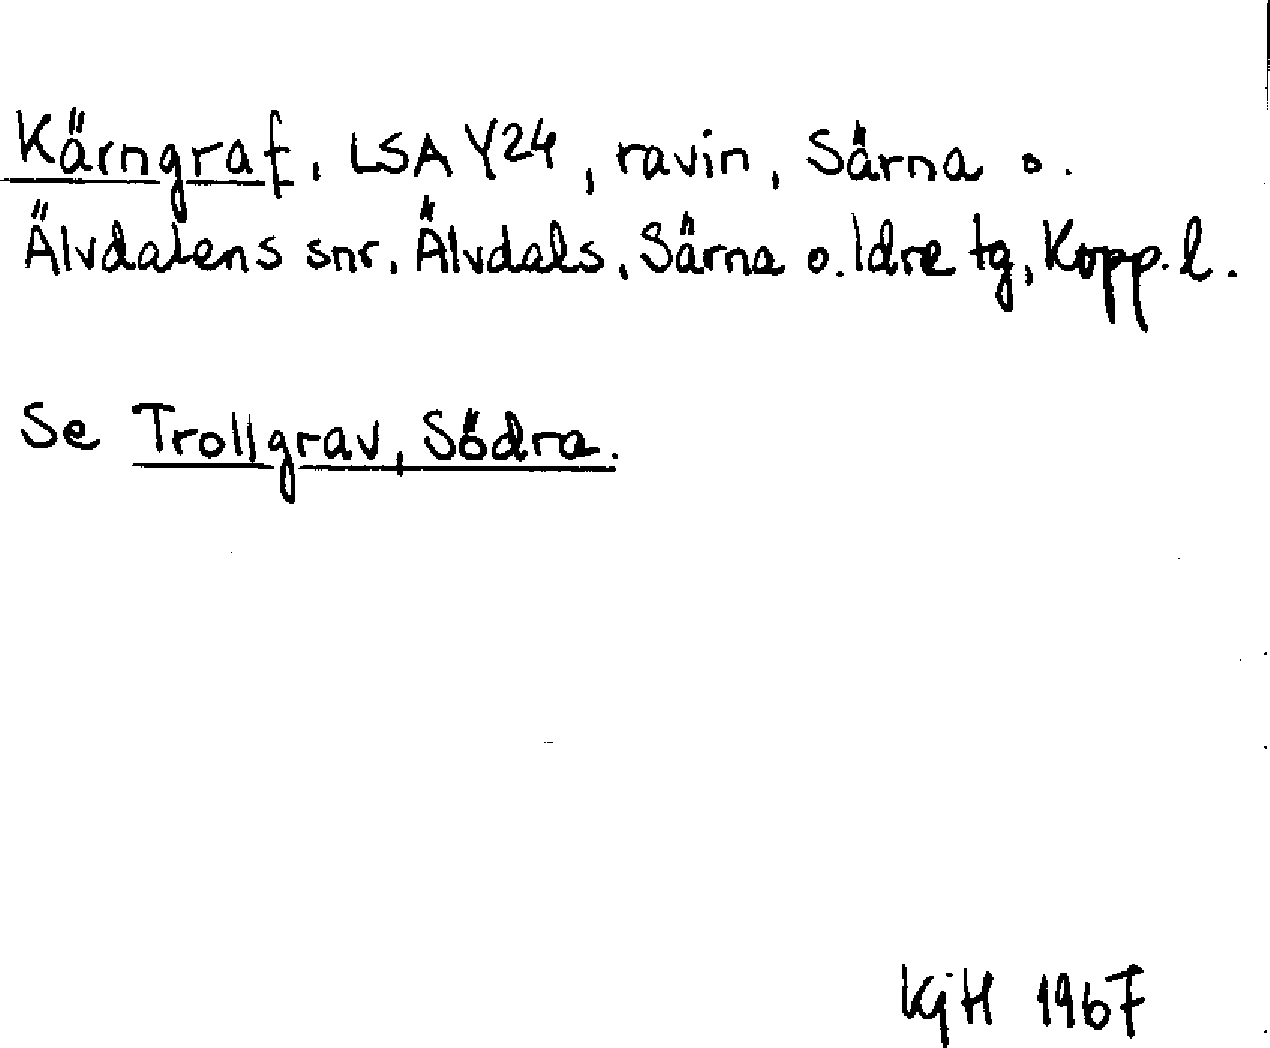 Kärngraf, LSA Y24, ravin, Särna o.
Älvdalens snr, Älvdals, Särna o. Idre tg, Kopp. l.
Se Trollgrav, Södra.
KjH 1967